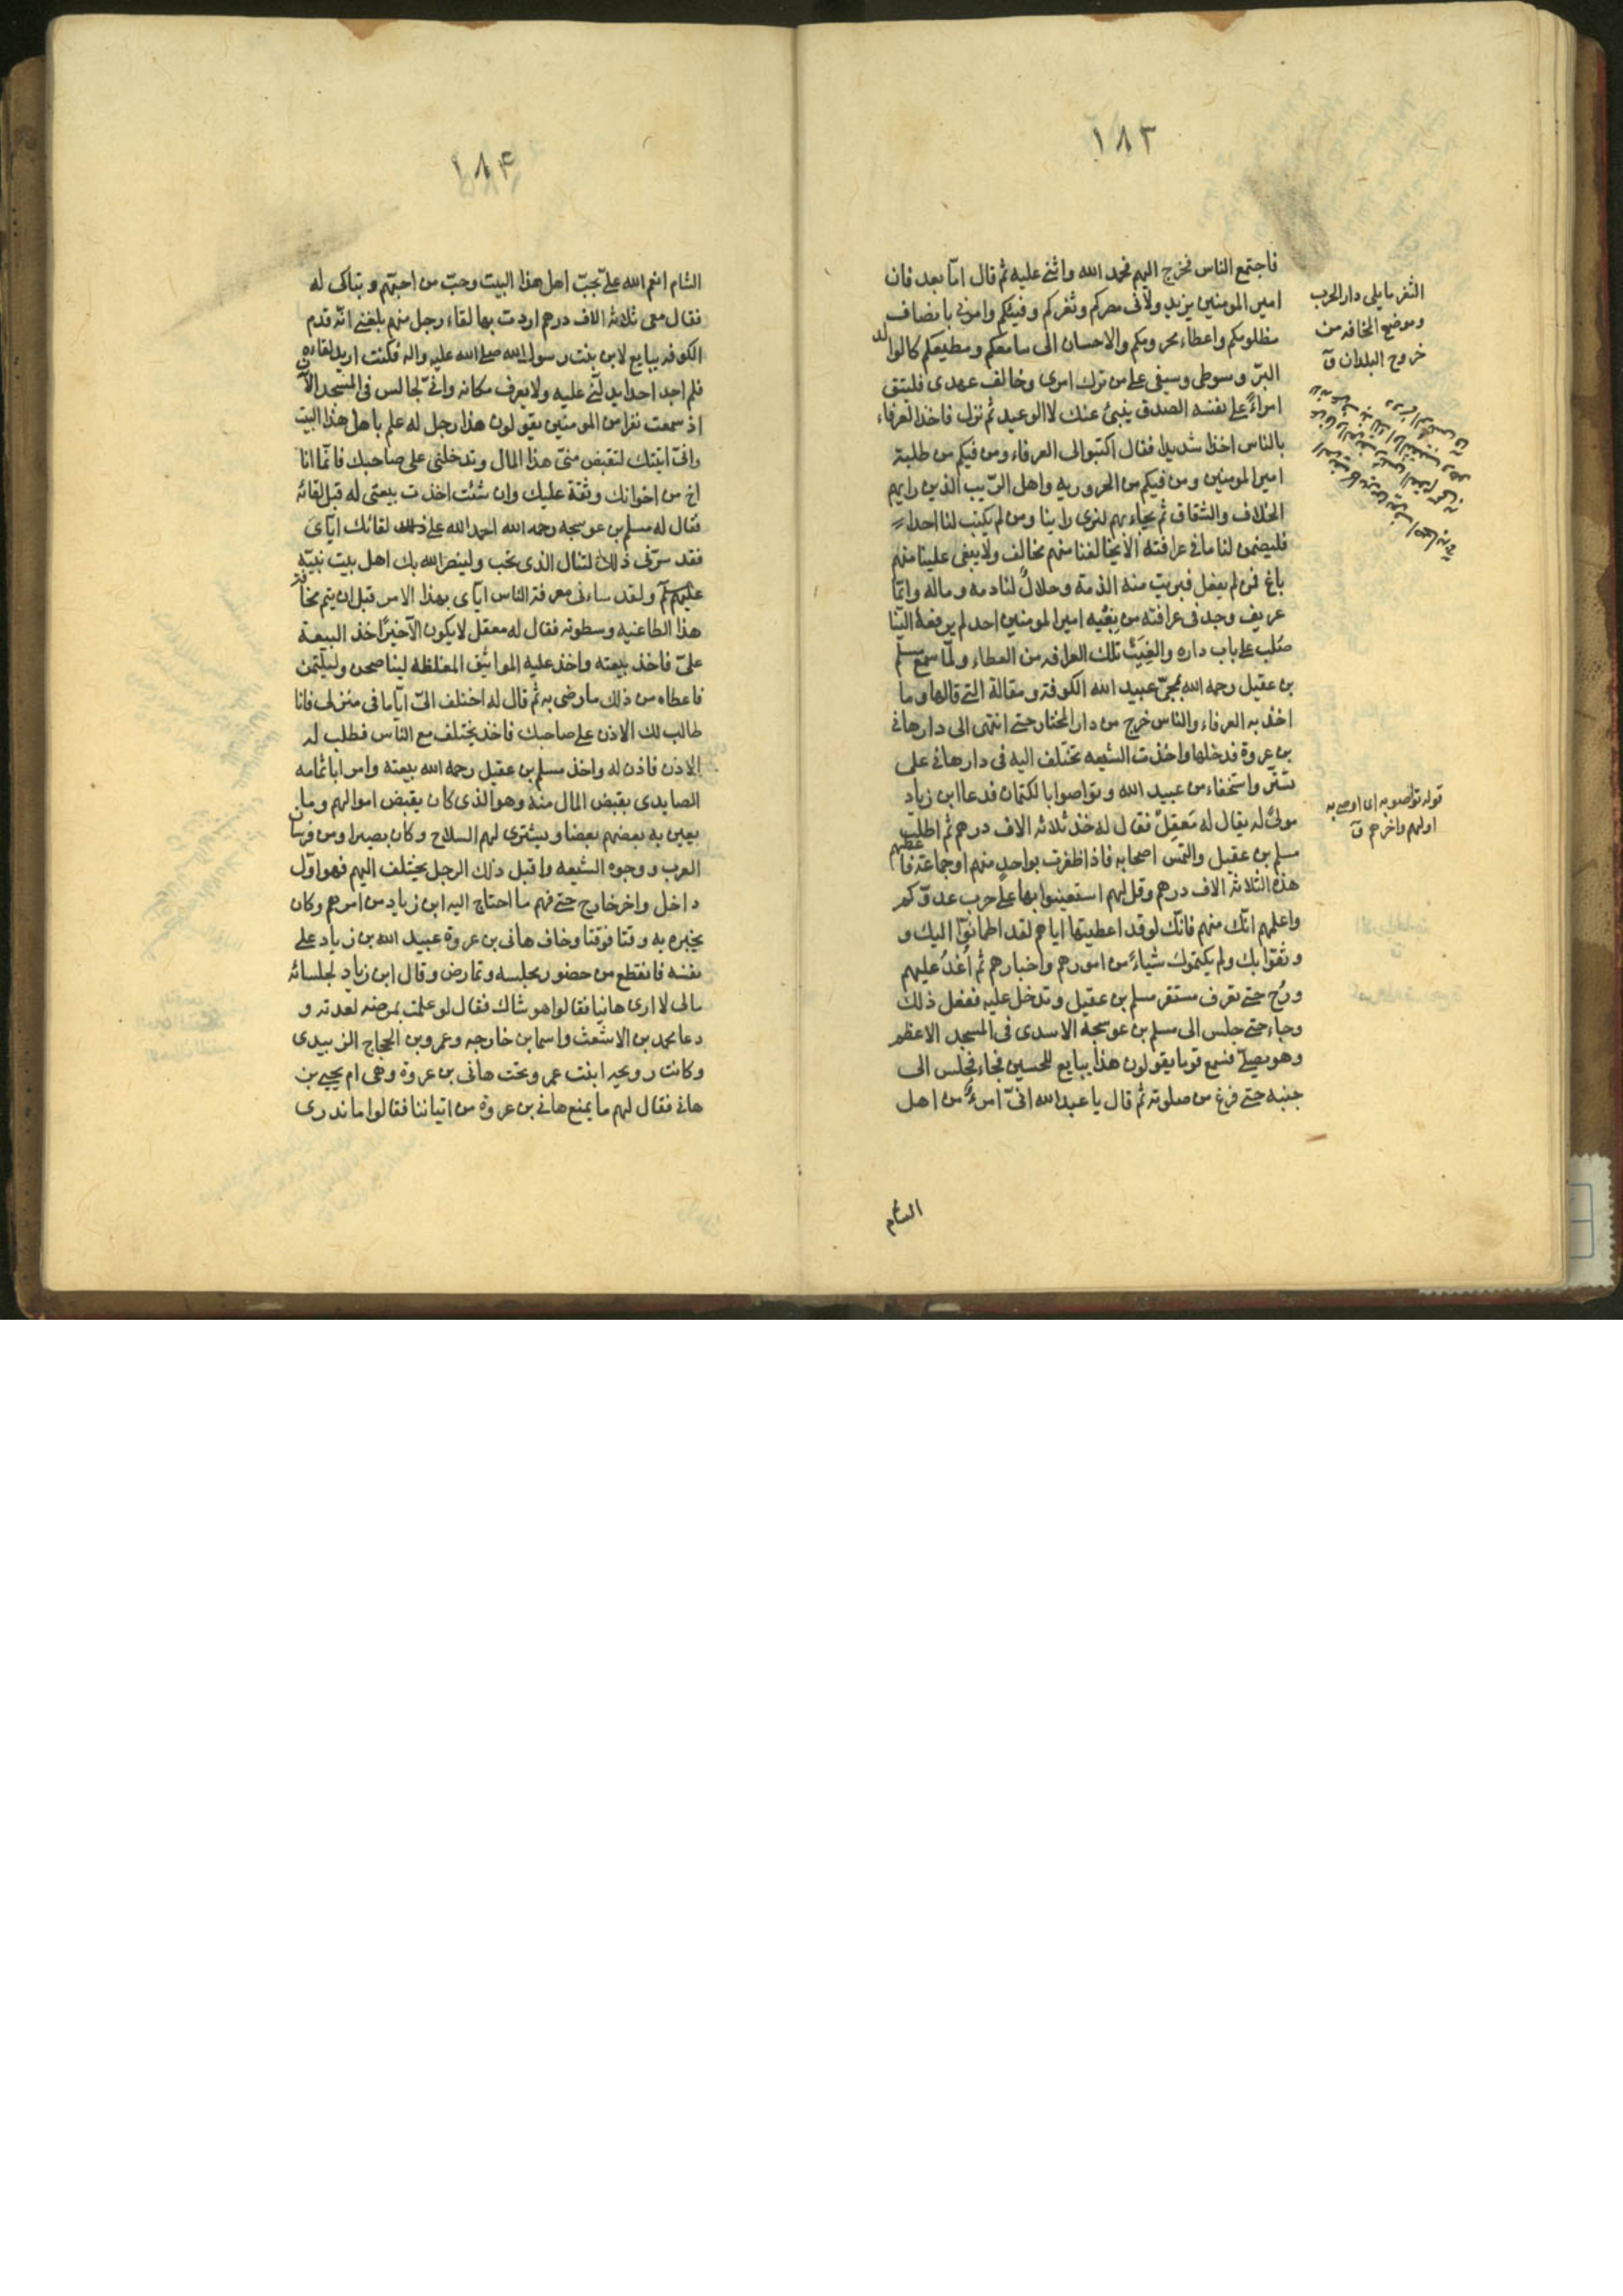 ١٨٣
فاجتمع الناس فخرج اليهم فحمد الله واثنى عليه ثم قال امّا بعد فان
امير المومنين يزيد ولّانى مصركم وثغركم وفيئكم وامرنى بانصاف
مظلومكم واعطاء محرومكم والاحسان الى سامعكم ومطيعكم كالوالد
البرّ وسوطى وسيفى على من ترك امرى وخالف عهدى فليتق
امراءً على نفسه الصدق ينبئ عنك لا الوعيد ثم نزل فاخذ العرفاء
بالناس اخذا شديدا فقال اكتبوا لى العرفاء ومن فيكم من طلبة
امير المومنين ومن فيكم من الحروريه واهل الرّيب الذين رايهم
الخلاف والشقاق ثم يجاء بهم لنرى راينا ومن لم يكتب لنا احدا
فليضمن لنا ما فى عرافته الّا يخالفنا منهم مخالف ولا يبغى علينا منهم
باغ فمن لم يفعل فبريت منه الذمة وحلالٌ لنا دمه وماله وايّما
عريف وجد فى عرافته من بغيه امير المومنين احد لم يرفعه الينا
صُلب على باب داره والغيت تلك العرافه من العطاء ولمّا سمع مسلم
بن عقيل رحمه الله بمجىّ عبيد الله الكوفة ومقالة التى قالها وما
اخذ به العرفاء والناس خرج من دار المختار حتى انتهى الى دار هانى
بن عروة فدخلها واخذت الشيعه تختلف اليه فى دار هانى على
تستّر واستخفاء من عبيد الله وتواصوا بالكتمان فدعا ابن زياد
مولىً له يقال له مَعقِلٌ فقال له خذ ثلاثه الاف درهم ثم اطلب
مسلم بن عقيل والتمس اصحابه فاذا ظفرت بواحدٍ منهم او جماعة فاعطهم
هذه الثلاثه الاف درهم وقل لهم استعينوا بها على حرب عدوّكم
واعلمهم انّك منهم فانّك لو قد اعطيتها اياهم لقد اطمأنّوا اليك و
وثقوا بك ولم يكتموك شياءً من امورهم واخبارهم ثم اُغدُ عليهم
ورُح حتى تعرف مستقر مسلم بن عقيل وتدخل عليه ففعل ذلك
وجاء حتى جلس الى مسلم بن عوسجة الاسدى فى المسجد الاعظم
وهو يصلّى فسمع قوما يقولون هذا يبايع للحسين فجاء فجلس الى
جنبه حتى فرغ من صلوته ثم قال يا عبد الله انىّ امرءٌ من اهل
الشام
الثغر ما يلى دار الحرب
وموضع المخافه من
خروج البلدان ق
قوله تواصوا به اى اوصى به
اولهم واخرهم ق
١٨۴
الشام انعم الله علىّ بحبّ اهل هذا البيت وحبّ من احبّهم وتباكى له
فقال معى ثلاثه الاف درهم اردت بها لقاء رجل منهم بلغنى انّه قدم
الكوفه يبايع لابن بنت رسول الله صلى الله عليه واله فكنت اريد لقاءه
فلم اجد احدا يدلّنى عليه ولا يعرف مكانه وانىّ لجالس فى المسجد الآن
اذ سمعت نفرا من المومنين يقولون هذا رجل له علم باهل هذا البيت
وانى اتيتك لتقبض منّى هذا المال وتدخلنى على صاحبك فانّما انا
اخ من اخوانك وثقة عليك وان شئت اخذت بيعتى له قبل لقائه
فقال له مسلم بن عوسجه رحمه الله احمد الله على لقائك ايّاى
فقد سرّنى ذلك لتنال الذى تحب ولينصر الله بك اهل بيت نبيّه
عليهم ولقد ساءنى معرفة الناس ايّاى بهذا الامر قبل ان يتم مخافة
هذا الطاغيه وسطوته فقال له معقل لا يكون الّا خيرًا خذ البيعة
علىّ فاخذ بيعته واخذ عليه المواثيق المغلظه ليناصحن وليكتمن
فاعطاه من ذلك ما رضى به ثم قال له اختلف الىّ ايّاما فى منزلى فانا
طالب لك الاذن على صاحبك فاخذ يختلف مع الناس فطلب له
الاذن فاذن له واخذ مسلم بن عقيل رحمه الله بيعته وامر ابا ثمامه
الصايدى بقبض المال منه وهو الذى كان يقبض اموالهم وما
يعين به بعضهم بعضا ويشترى لهم السلاح وكان بصيرا ومن فرسان
العرب ووجوه الشيعه واقبل ذلك الرجل يختلف اليهم فهو اوّل
داخل واخر خارج حتى فهم ما احتاج اليه ابن زياد من امرهم وكان
يخبره به وقتا فوقتا وخاف هانى بن عروة عبيد الله بن زياد على
نفسه فانقطع من حضور مجلسه وتمارض وقال ابن زياد لجلسائه
مالى لا ارى هانيا فقالوا هو شاك فقال لو علمت بمرضه لعدته و
دعا محمد بن الاشعث واسما بن خارجه وعمرو بن الحجاج الزبيدى
وكانت رويحه ابنت عمرو تحت هانى بن عروة وهى ام يحيى بن
هانى فقال لهم ما يمنع هانى بن عروة من اتياننا فقالوا ما ندرى